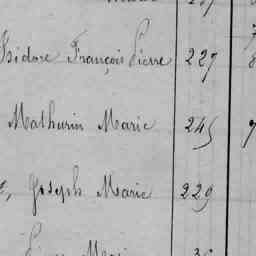 Isidore François Pierre 227
Mathurin Marie 245 7
Joseph Marie 229